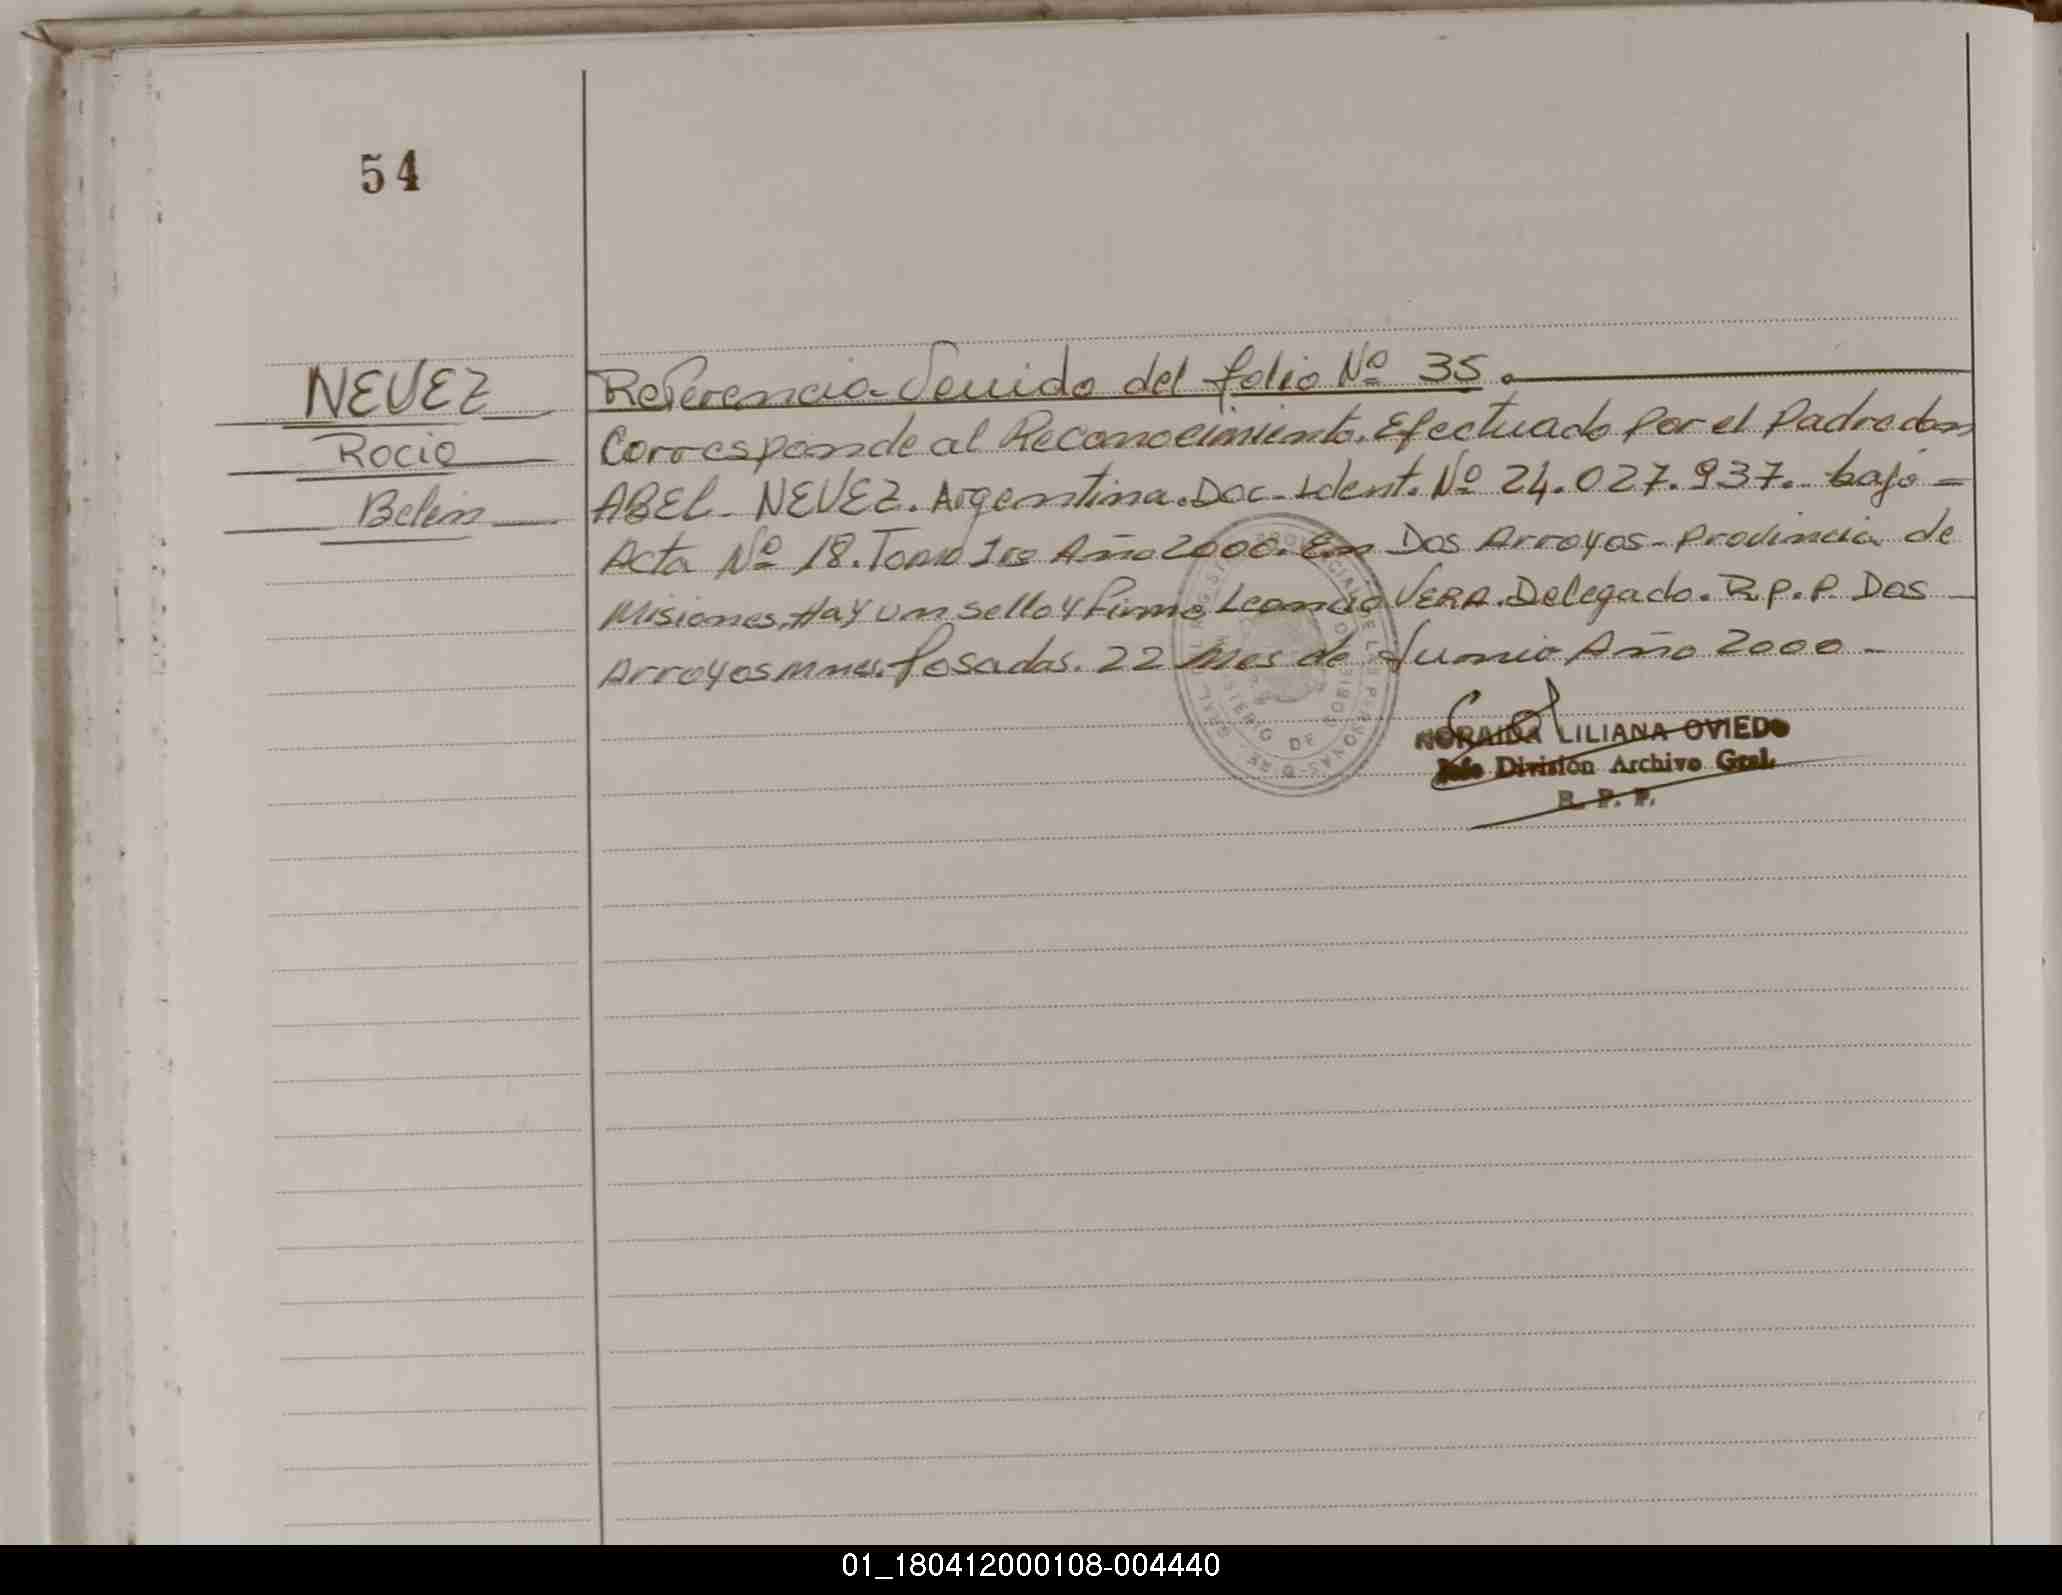 54
NEVEZ
Rocio
Belén
Referencia Venido del folio Nº 35.
Corresponde al Reconocimiento. Efectuado por el Padre don
ABEL NEVEZ. Argentina. Doc. Ident. Nº 24.027.937. bajo =
Acta Nº 18. Tomo 1ro Año 2000. En Dos Arroyos - Provincia de
Misiones. Hay un sello y firma Leoncio VERA. Delegado. R.P.P. Dos
Arroyos Mnes. Posadas. 22 Mes de Junio Año 2000 -
NORAIDA LILIANA OVIEDO
Jefe División Archivo Gral.
R. P. P.
01_180412000108-004440